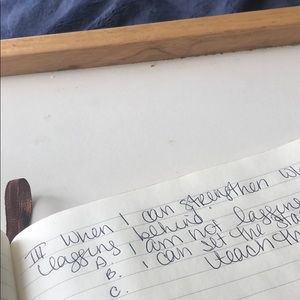 III When I can strengthen wh
lagging behind.
A. I am not lagging
B. I can set the
C. teach